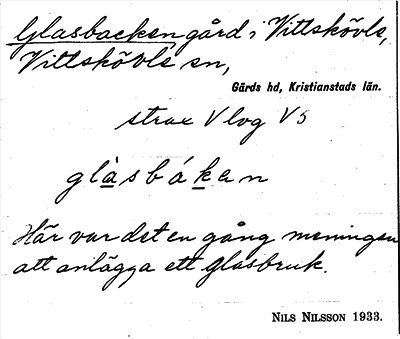 Glasbacken gård i Vittskövle,
Vittskövle sn,
Gärds hd, Kristianstads län.
strax V log V 5
glàsbákan
Här var det en gång meningen
att anlägga ett glasbruk.
NILS NILSSON 1933.